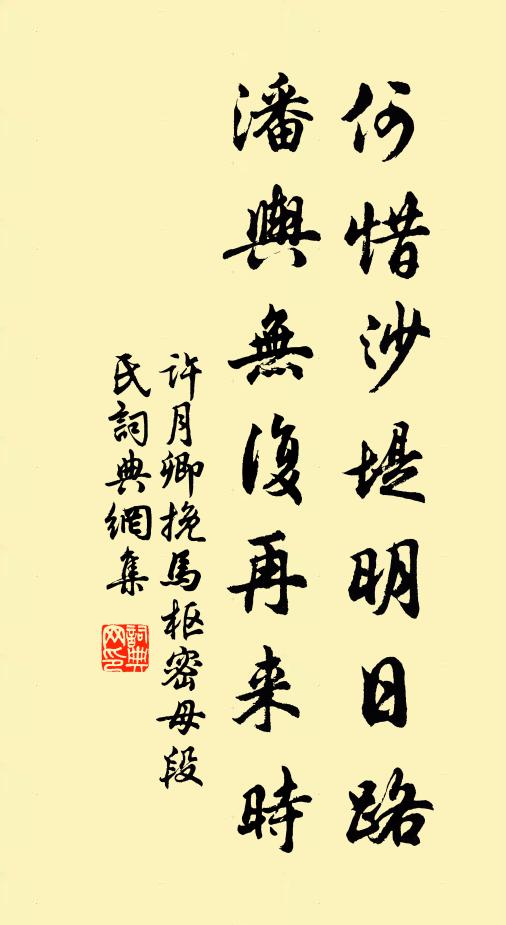 何惜沙堤明日路
潘輿無復再来時
许月卿挽馬枢密母段
民詞典網集
詞典網印